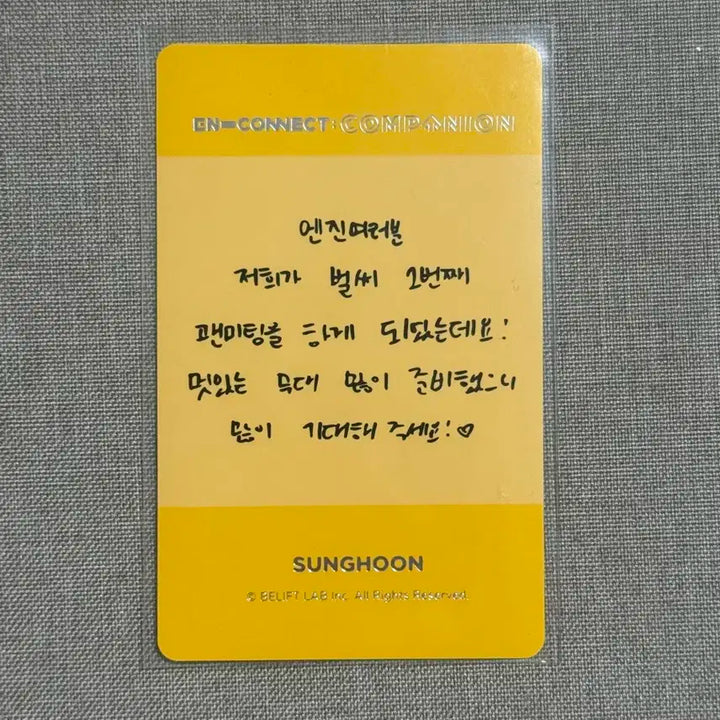 EN-CONNECT: COMPANION
엔진여러분
저희가 벌써 2번째
팬미팅을 하게 되었는데요!
멋있는 무대 많이 준비했으니
많이 기대해 주세요! ♡
SUNGHOON
© BELIFT LAB Inc. All Rights Reserved.